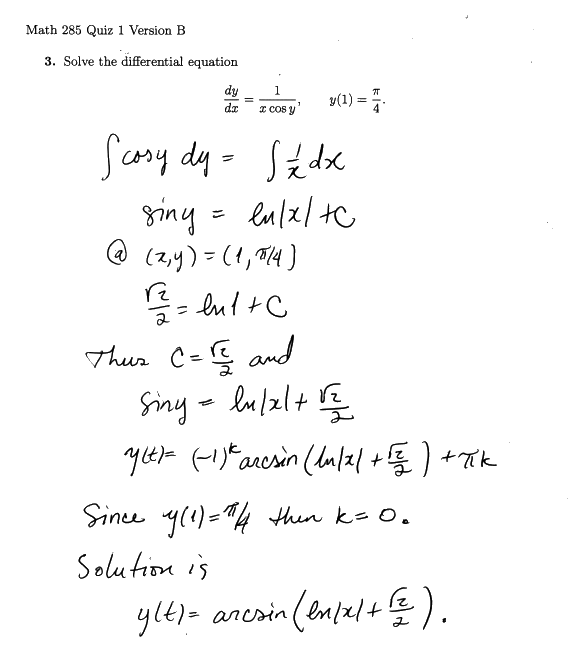 Math 285 Quiz 1 Version B
3. Solve the differential equation
dy/dx = 1/(x cos y), y(1) = π/4.
∫ cosy dy = ∫ 1/x dx
siny = ln|x| + C
@ (x,y) = (1, π/4)
√2/2 = ln 1 + C
Thus C = √2/2 and
siny = ln|x| + √2/2
y(t) = (-1)^k arcsin(ln|x| + √2/2) + πk
Since y(1) = π/4 then k = 0.
Solution is
y(t) = arcsin(ln|x| + √2/2).